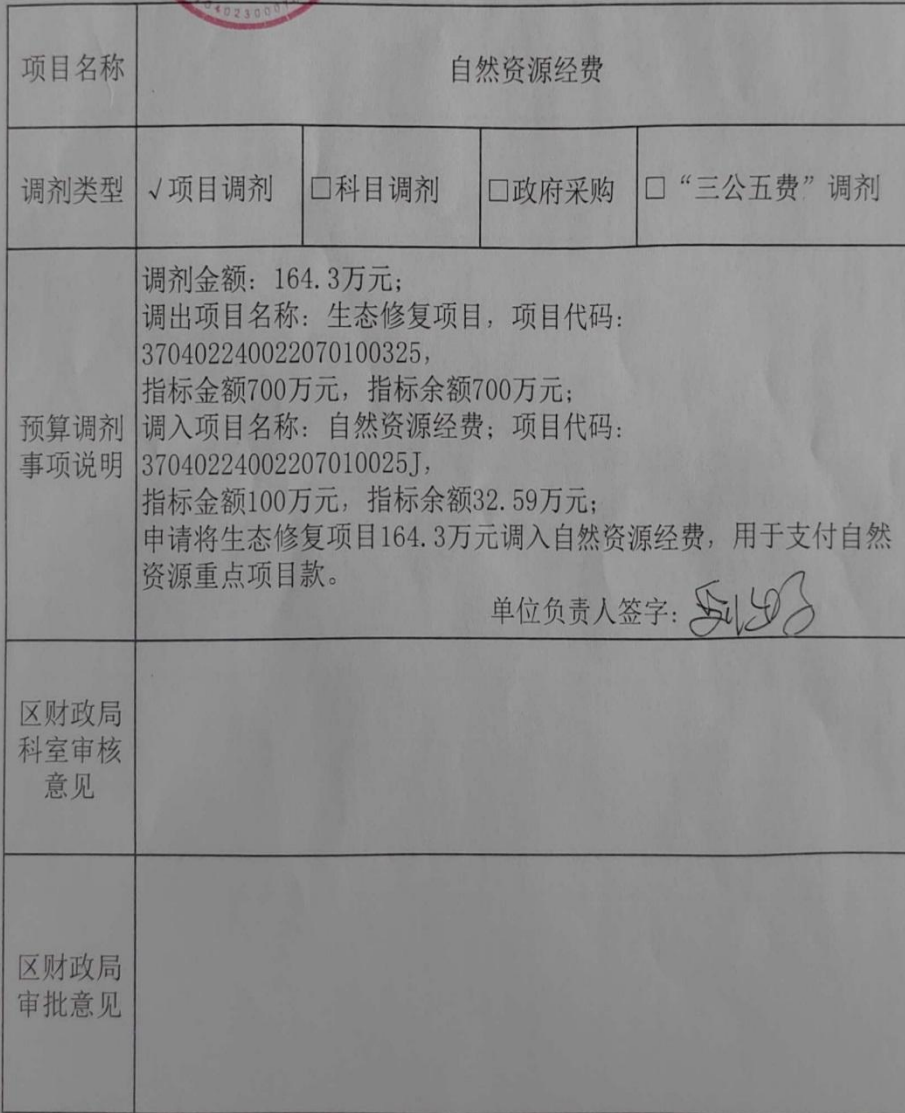 项目名称
自然资源经费
调剂类型
√项目调剂
□科目调剂
□政府采购
□“三公五费”调剂
预算调剂
事项说明
调剂金额：164.3万元；
调出项目名称：生态修复项目，项目代码：
370402240022070100325，
指标金额700万元，指标余额700万元；
调入项目名称：自然资源经费；项目代码：
37040224002207010025J，
指标金额100万元，指标余额32.59万元；
申请将生态修复项目164.3万元调入自然资源经费，用于支付自然
资源重点项目款。
单位负责人签字：
区财政局
科室审核
意见
区财政局
审批意见